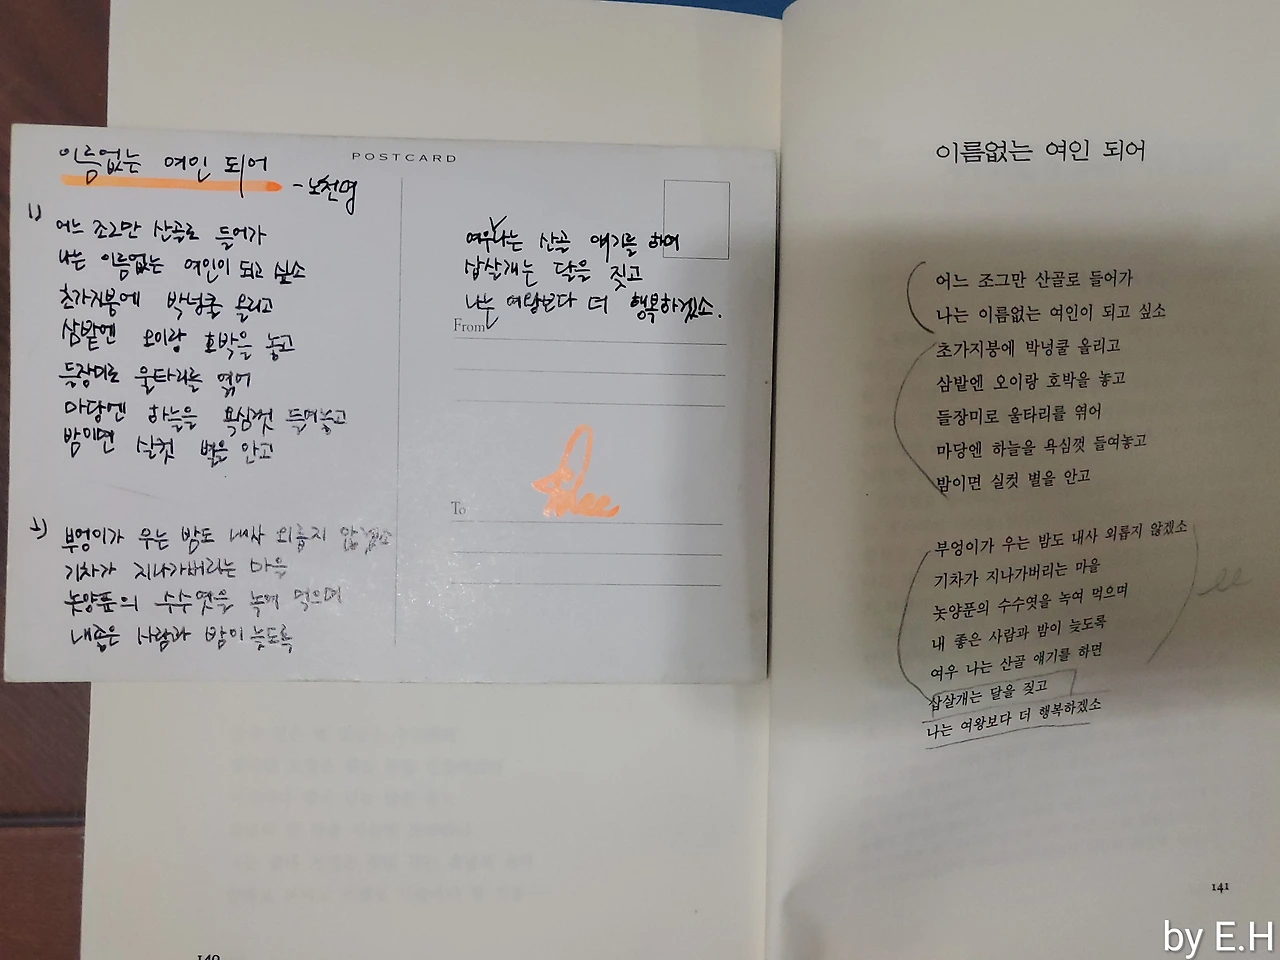 POSTCARD
이름없는 여인 되어
-노천명
1)
어느 조그만 산골로 들어가
나는 이름없는 여인이 되고 싶소
초가지붕에 박넝쿨 올리고
삼밭엔 오이랑 호박을 놓고
들장미로 울타리를 엮어
마당엔 하늘을 욕심껏 들여놓고
밤이면 실컷 별을 안고
2)
부엉이가 우는 밤도 내사 외롭지 않겠소
기차가 지나가버리는 마을
놋양푼의 수수엿을 녹여 먹으며
내좋은 사람과 밤이 늦도록
여우나는 산골 얘기를 하여
삽살개는 달을 짖고
나는 여왕보다 더 행복하겠소.
From
To
140
이름없는 여인 되어
어느 조그만 산골로 들어가
나는 이름없는 여인이 되고 싶소
초가지붕에 박넝쿨 올리고
삼밭엔 오이랑 호박을 놓고
들장미로 울타리를 엮어
마당엔 하늘을 욕심껏 들여놓고
밤이면 실컷 별을 안고
부엉이가 우는 밤도 내사 외롭지 않겠소
기차가 지나가버리는 마을
놋양푼의 수수엿을 녹여 먹으며
내 좋은 사람과 밤이 늦도록
여우 나는 산골 얘기를 하면
삽살개는 달을 짖고
나는 여왕보다 더 행복하겠소
141
by E.H